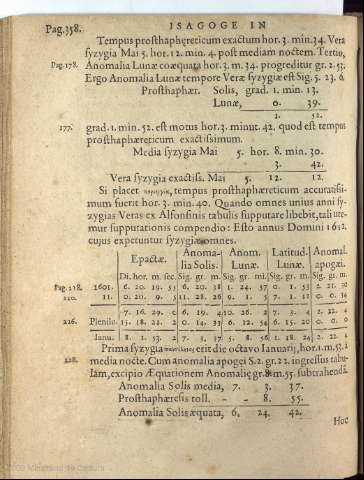 Pag.358. ISAGOGE IN
Tempus prosthaphæreticum exactum hor. 3. min. 34. Vera
syzygia Mai 5. hor. 12. min. 4. post mediam noctem. Tertio,
Pag.178. Anomalia Lunæ coæquata hor. 3. m. 34. progreditur gr. 2. 53.
Ergo Anomalia Lunæ tempore Veræ syzygiæ est Sig. 5. 23. 6.
Prosthaphær. Solis, grad. 1. min. 13.
Lunæ, 0. 39.
1. 52.
177. grad. 1. min. 52. est motus hor. 3. minut. 42. quod est tempus
prosthaphæreticum exactissimum.
Media syzygia Mai 5. hor. 8. min. 30.
3. 42.
Vera syzygia exactiss. Mai 5. 12. 12.
Si placet tempus prosthaphæreticum accuratissi-
mum fuerit hor. 3. min. 40. Quando omnes unius anni sy-
zygias Veras ex Alfonsinis tabulis supputare libebit, tali ute-
mur supputationis compendio: Esto annus Domini 1612.
cujus expetuntur syzygiæ omnes.
Epactæ. Anoma-lia Solis. Anom. Lunæ. Latitud. Lunæ. Anomal. apogæi.
Di. hor. m. sec. Sig. gr. m. Sig. gr. mi. Sig. gr. m. Sig. gr. m.
Pag.218. 1601. 6. 20. 19. 55 6. 20. 38 1. 24. 57 0. 1. 53 2. 21. 50
220. 11. 0. 20. 9. 5 11. 28. 26 9. 1. 5 7. 1. 11 0. 0. 34
7. 16. 29. 0 6. 19. 4 10. 26. 2 7. 3. 4 2. 22. 4
226. Plenilu. 15. 18. 22. 2 0. 14. 33 6. 12. 54 6. 15. 20 0. 0. 0
Janu. 8. 1. 53. 2 7. 3. 37 5. 8. 56 1. 18. 24 2. 22. 4
Prima syzygia erit die octavo Ianuarij, hor. 1. m. 53. à
228. media nocte. Cum anomalia apogei S. 2. gr. 22. ingressus tabu-
lam, excipio Æquationem Anomaliæ gr. 8. m. 55. subtrahendā.
Anomalia Solis media, 7. 3. 37.
Prosthaphæresis toll. – – 8. 55.
Anomalia Solis æquata, 6. 24. 42.
Hoc